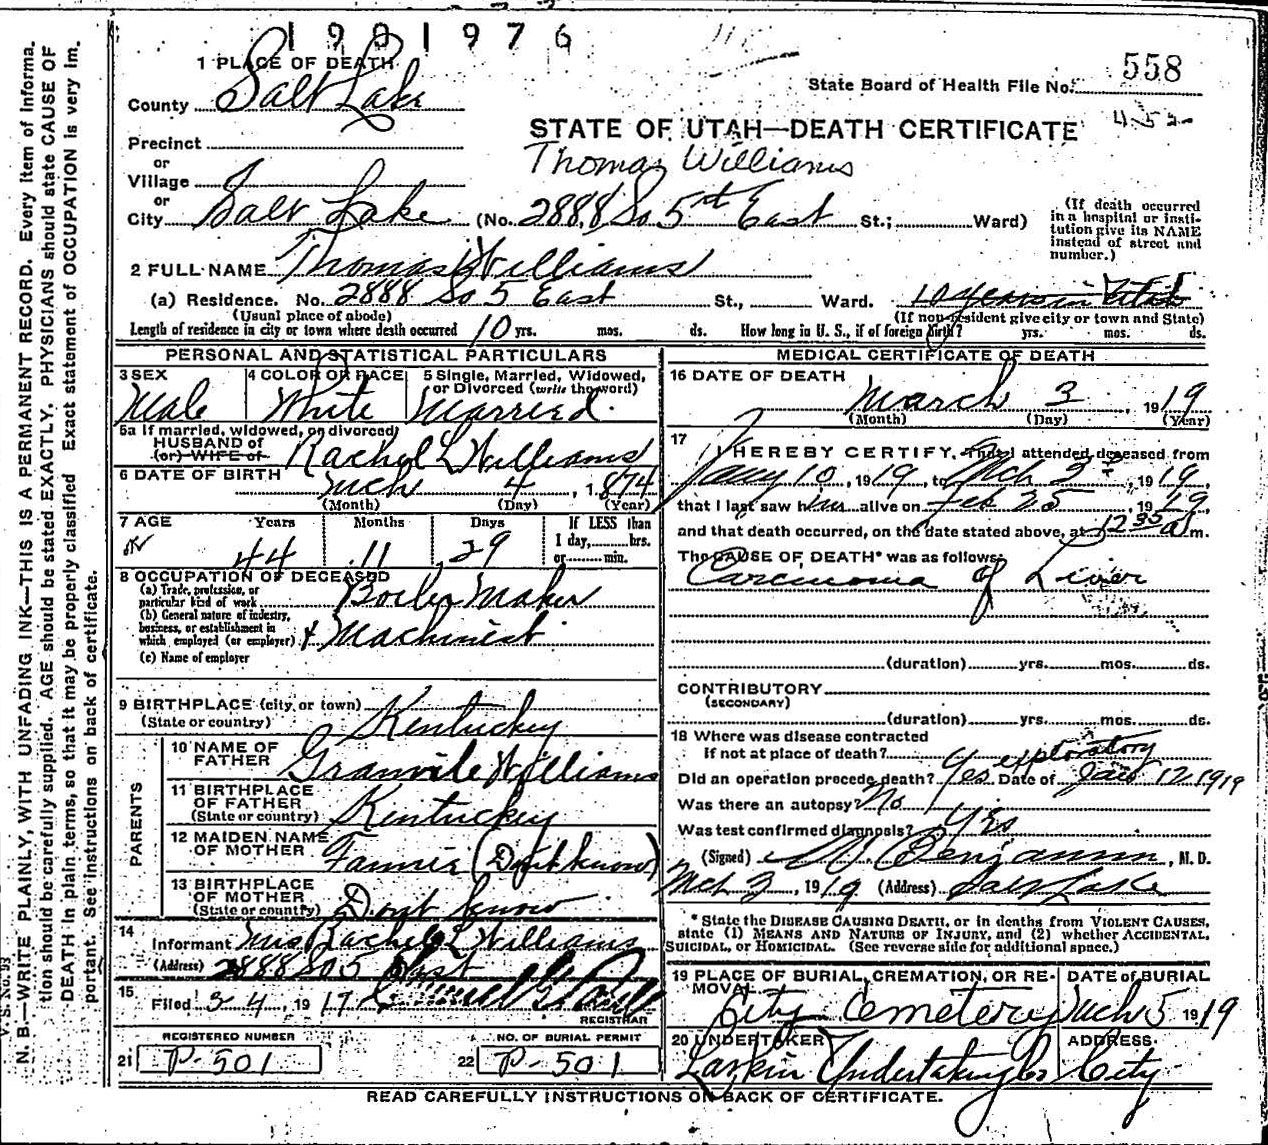 1901976
558
State Board of Health File No.
1 PLACE OF DEATH
County Salt Lake
STATE OF UTAH—DEATH CERTIFICATE
Thomas Williams
Precinct
or
Village
or
City Salt Lake (No. 2888 So 5th East St.; Ward)
(If death occurred in a hospital or institution give its NAME instead of street and number.)
2 FULL NAME Thomas Williams
(a) Residence. No. 2888 So 5 East St., Ward. 10 years in Utah
(Usual place of abode) (If non-resident give city or town and State)
Length of residence in city or town where death occurred 10 yrs. mos. ds. How long in U. S., if of foreign birth? yrs. mos. ds.
PERSONAL AND STATISTICAL PARTICULARS
3 SEX
Male
4 COLOR OR RACE
White
5 Single, Married, Widowed, or Divorced (write the word)
Married.
5a If married, widowed, or divorced
HUSBAND of
(or) WIFE of
Rachel L Williams
6 DATE OF BIRTH Mch 4, 1874
(Month) (Day) (Year)
7 AGE Years Months Days If LESS than
44 11 29 1 day, hrs.
or min.
8 OCCUPATION OF DECEASED
(a) Trade, profession, or particular kind of work Boiler Maker
(b) General nature of industry, business, or establishment in which employed (or employer) + Machinist
(c) Name of employer
9 BIRTHPLACE (city or town)
(State or country) Kentuckey
PARENTS
10 NAME OF FATHER Granvile Williams
11 BIRTHPLACE OF FATHER
(State or country) Kentuckey
12 MAIDEN NAME OF MOTHER Fannie (Dont know)
13 BIRTHPLACE OF MOTHER
(State or country) Dont know
14 Informant Mrs Rachel L Williams
(Address) 2888 So 5 East
15 Filed 3-4, 1917
REGISTRAR
REGISTERED NUMBER
21 P-501
NO. OF BURIAL PERMIT
22 P-501
MEDICAL CERTIFICATE OF DEATH
16 DATE OF DEATH
March 3, 1919
(Month) (Day) (Year)
17
I HEREBY CERTIFY, That I attended deceased from
Jany 10, 1919, to Mch 2, 1919,
that I last saw him alive on Feb 25, 1919,
and that death occurred, on the date stated above, at 12 35 a m.
The CAUSE OF DEATH* was as follows:
Carcinoma of Liver
(duration) yrs. mos. ds.
CONTRIBUTORY
(SECONDARY)
(duration) yrs. mos. ds.
18 Where was disease contracted
If not at place of death?
exploratory
Did an operation precede death? Yes Date of Jan 12 1919
Was there an autopsy? No
Was test confirmed diagnosis? Yes
(Signed) Benjamin, M. D.
Mch 3, 1919 (Address) Salt Lake
* State the DISEASE CAUSING DEATH, or in deaths from VIOLENT CAUSES, state (1) MEANS AND NATURE OF INJURY, and (2) whether ACCIDENTAL, SUICIDAL, or HOMICIDAL. (See reverse side for additional space.)
19 PLACE OF BURIAL, CREMATION, OR REMOVAL
City Cemetery
DATE of BURIAL
Mch 5 1919
20 UNDERTAKER
Larkin Undertaking Co
ADDRESS
City
READ CAREFULLY INSTRUCTIONS ON BACK OF CERTIFICATE.
N. B.—WRITE PLAINLY, WITH UNFADING INK—THIS IS A PERMANENT RECORD. Every item of information should be carefully supplied. AGE should be stated EXACTLY. PHYSICIANS should state CAUSE OF DEATH in plain terms, so that it may be properly classified. Exact statement of OCCUPATION is very important. See instructions on back of certificate.